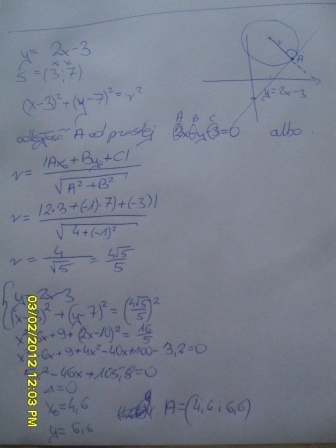 y = 2x-3
S = (3;7)
(x-3)²+(y-7)²=r²
A od prostej
A B C
2x-y-3=0 albo
r = |Ax₀+By₀+C| / √A²+B²
r = |2·3+(-1)·7)+(-3)| / √4+(-1)²
r = 4/√5 = 4√5/5
y=2x-3
(x-3)²+(y-7)²=(4√5/5)²
x²-6x+9+(2x-10)²=16/5
x²-6x+9+4x²-40x+100-3,2=0
5x²-46x+105,8=0
Δ=0
x₀=4,6
A=(4,6;6,6)
y=6,6
A
y=2x-3
03/02/2012 12:03 PM